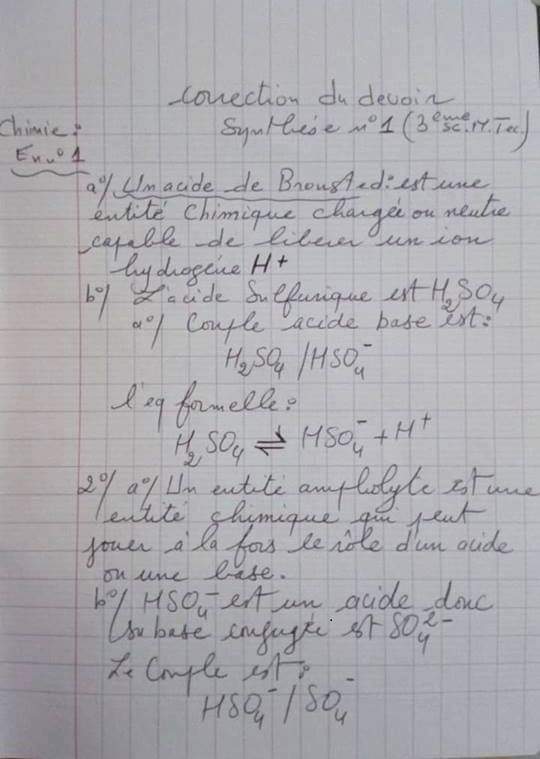 correction du devoir
Chimie: Synthése n°1 (3ème Sc.M.Tec)
Ex n° 1
a°/ Un acide de Bronsted: est une
entité chimique chargée ou neutre
capable de liberer un ion
hydrogène H+
b°/ L'acide Sulfurique est H₂SO₄
a°/ Couple acide base est:
H₂SO₄ / HSO₄⁻
l'eq formelle:
H₂SO₄ ⇌ HSO₄⁻ + H⁺
2°/ a°/ Un entité ampholyte est une
entité chimique qui peut
jouer à la fois le rôle d'un acide
ou une base.
b°/ HSO₄⁻ est un acide donc
sa base conjugée est SO₄²⁻
Le Couple est:
HSO₄⁻ / SO₄⁻